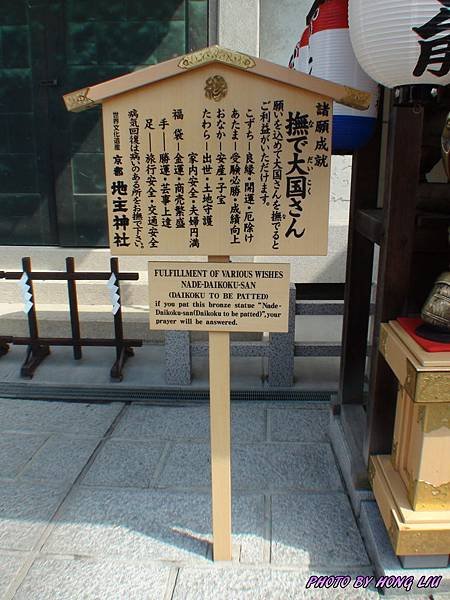 諸願成就
撫で大国さん
な だいこく
願いを込めて大国さんを撫でると
ご利益がいただけます。
こずち―良縁・開運・厄除け
あたま―受験必勝・成績向上
おなか―安産・子宝
たわら―出世・土地守護
福袋―金運・商売繁盛
手―勝運・芸事上達
足―旅行安全・交通安全
家内安全・夫婦円満
病気回復は病いのある所をお撫で下さい。
世界文化遺産 京都 地主神社
FULFILLMENT OF VARIOUS WISHES
NADE-DAIKOKU-SAN
(DAIKOKU TO BE PATTED)
if you pat this bronze statue "Nade-
Daikoku-san(Daikoku to be patted)",your
prayer will be answered.
PHOTO BY HONG LIU